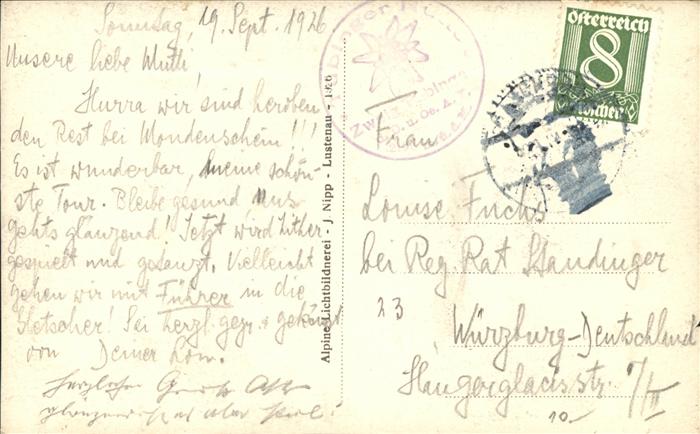 Sonntag, 19. Sept. 1926
Unsere liebe Mutti,
Hurra wir sind heroben
den Rest bei Mondenschein!!!
Es ist wunderbar, meine schön-
ste Tour. Bleibe gesund, uns
gehts glänzend! Jetzt wird Zither
gespielt und getanzt. Vielleicht
gehen wir mit Führer in die
Gletscher! Sei herzl. gegr. + geküsst
von Deiner
Alpine Lichtbildnerei - J. Nipp - Lustenau - 1926
Österreich
8
Groschen
Frau
Louise Fuchs
bei Reg. Rat Standinger
23
Würzburg-Deutschland
Haugerglacisstr. 7/II
10.-